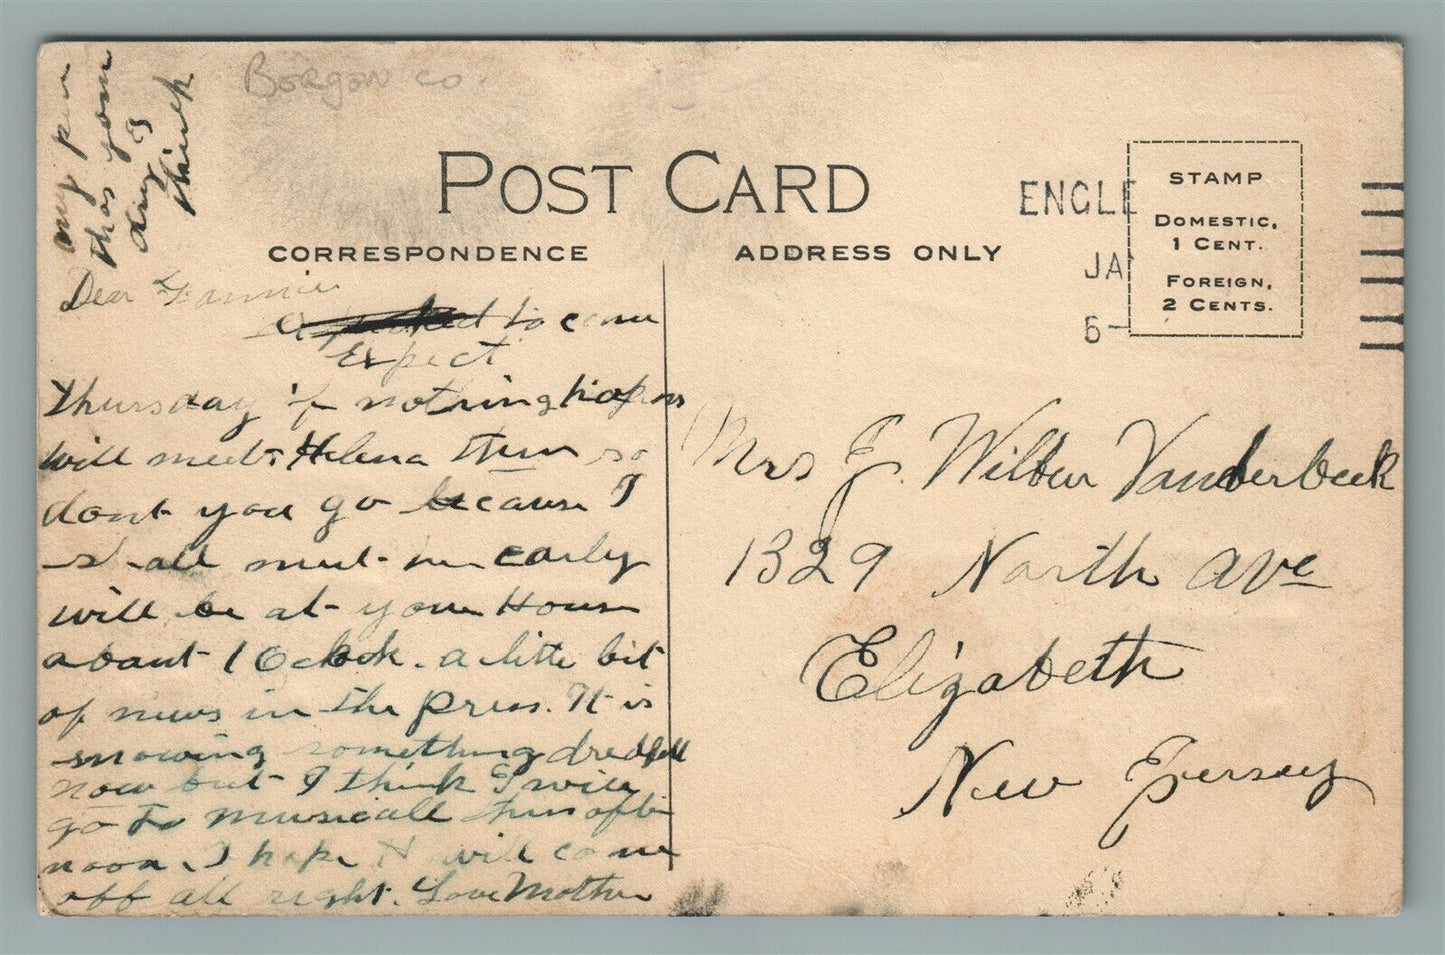 Bergen co.
my pen
has gone
dry I
think
POST CARD
CORRESPONDENCE
ADDRESS ONLY
ENGLE
JA
6-
STAMP
DOMESTIC,
1 CENT.
FOREIGN,
2 CENTS.
Dear Fannie
to come
Expect
Thursday if nothing hapens
will meet Helena then so
dont you go because I
shall meet her early
will be at your House
about 1 Oclock. a little bit
of news in the Press. It is
snowing something dredfull
now but I think I will
go to musicall this after
noon. I hope it will come
off all right. Love Mother
Mrs J. Wilbur Vanderbeek
1329 North Ave
Elizabeth
New Jersey